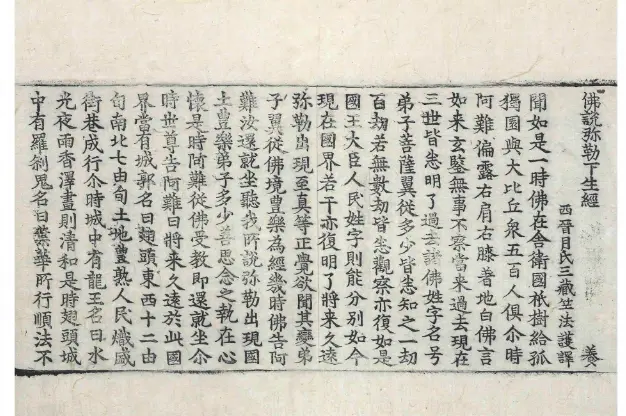 佛說弥勒下生經 養
西晉月氏三藏竺法護譯
聞如是一時佛在舍衛國祇樹給孤
獨園與大比丘衆五百人俱尒時
阿難偏露右肩右膝著地白佛言
如来玄鑒無事不察當来過去現在
三世皆悉明了過去諸佛姓字名号
弟子菩薩翼從多少皆悉知之一劫
百劫若無數劫皆悉觀察亦復如是
國王大臣人民姓字則能分別如今
現在國界若干亦復明了將来久遠
弥勒出現至真等正覺欲聞其變弟
子翼從佛境豊樂為經幾時佛告阿
難汝還就坐聽我所說弥勒出現國
土豊樂弟子多少善思念之執在心
懷是時阿難從佛受教即還就坐尒
時世尊告阿難曰將来久遠於此國
界當有城郭名曰翅頭東西十二由
旬南北七由旬土地豊熟人民熾盛
街巷成行尒時城中有龍王名曰水
光夜雨香澤晝則清和是時翅頭城
中有羅剎鬼名曰葉華所行順法不